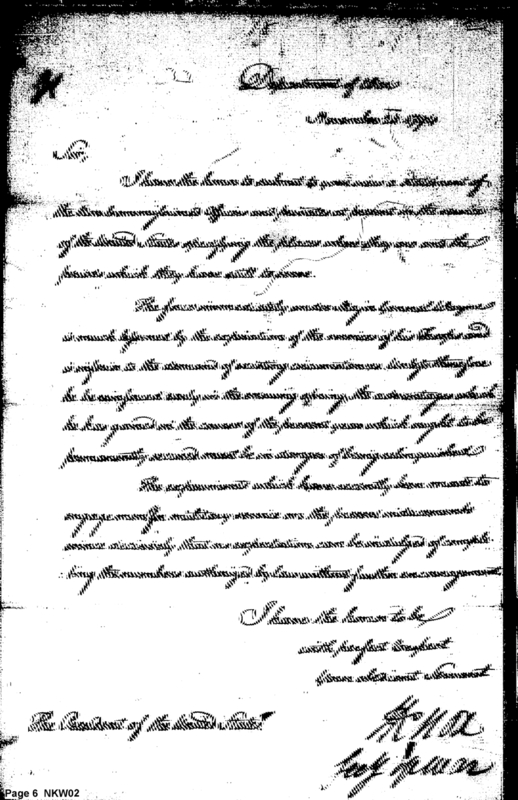 Department of War
November 1794
Sir,
I have the honor to submit to your view a statement of
the Non Commissioned Officers and privates at present in the service
of the United States specifying the places where they are and the
periods which they have still to serve.
The force immediately under Major General Wayne
is much lessened by the expiration of the service of his Troops and
is inferior to the demand of existing circumstances. Unless therefore
he be reinforced early in the ensuing spring the advantages which
he has gained in the course of the present year which ought to be
permanently secured must be in danger of being relinquished
The experiments which have recently been made to
engage men for military service on the present inducements
evince decisively that no expectations can be indulged of comple-
ting the numbers authorized by law without further encouragement
I have the honor to be
with perfect respect
Your obedient Servant
The President of the United States
H Knox
Secy of War
Page 6 NKW02